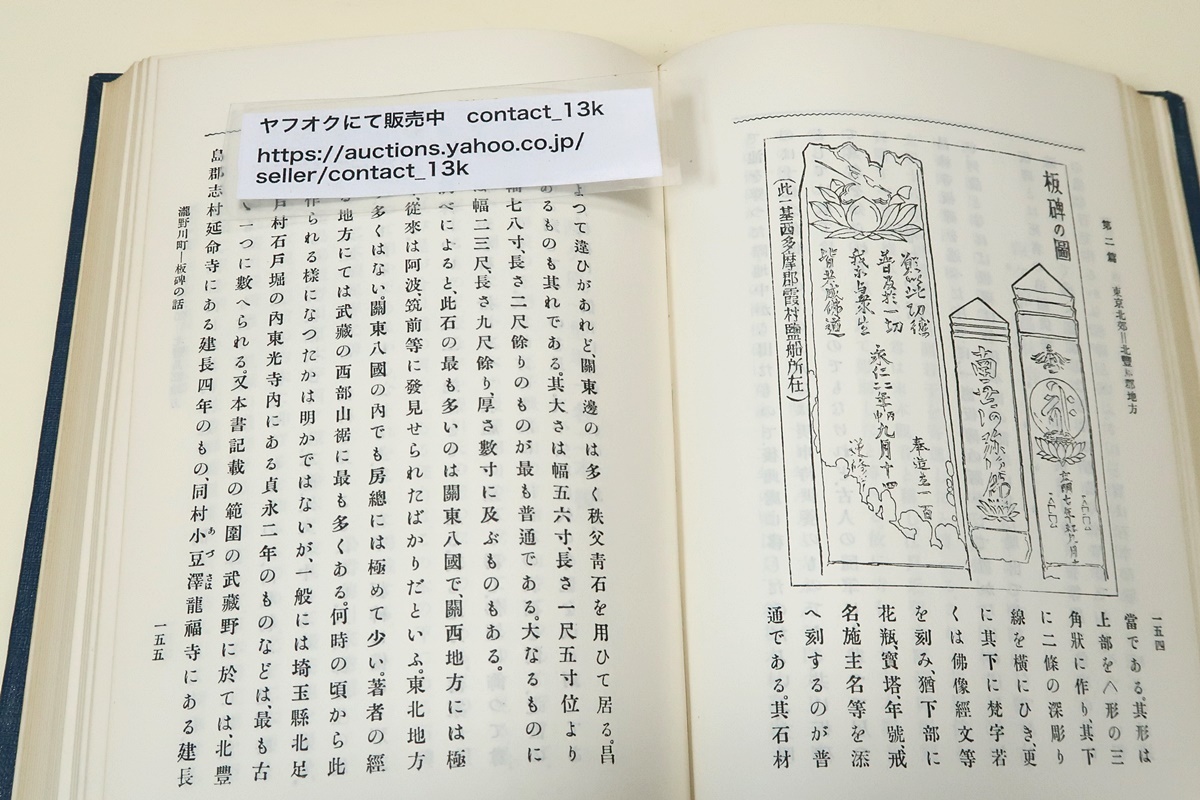 ヤフオクにて販売中 contact_13k
https://auctions.yahoo.co.jp/
seller/contact_13k
第二篇 東京北郊=北豐島郡地方
一五四
板碑の圖
南無阿弥陀佛
奉造立一百
願以此功德
普及於一切
我等與衆生
皆共成佛道
九月十四
逆修
(此一基西多摩郡霞村鹽船所在)
當である。其形は
上部をへ形の三
角狀に作り、其下
に二條の深彫り
線を橫にひき、更
に其下に梵字若
くは佛像經文等
を刻み猶下部に
花瓶、寶塔、年號、戒
名、施主名等を添
へ刻するのが普
通である。其石材
よつて違ひがあれど、關東邊のは多く秩父靑石を用ひて居る。昌
のるものも其れである。其大さは幅五六寸、長さ一尺五寸位より
幅七八寸、長さ二尺餘りのものが最も普通である。大なるものに
は幅二三尺、長さ九尺餘り、厚さ數寸に及ぶものもある。
べによると、此石の最も多いのは關東八國で、關西地方には極
從來は阿波筑前等に發見せられたばかりだといふ。東北地方
多くはない。關東八國の內でも房總には極めて少い。著者の經
る地方にては武藏の西部山裾に最も多くある。何時の頃から此
作られる樣になつたかは明かではないが、一般には埼玉縣北足
戶村石戶堀の內東光寺內にある貞永二年のものなどは、最も古
一つに數へられる。又本書記載の範圍の武藏野に於ては、北豐
島郡志村延命寺にある建長四年のもの、同村小豆澤龍福寺にある建長
あづさは
瀧野川町—板碑の話
一五五